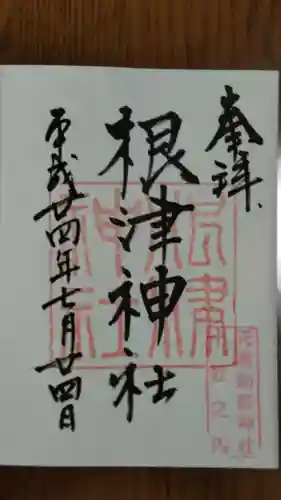 奉拝
根津神社
平成廿四年七月廿四日
根津神社